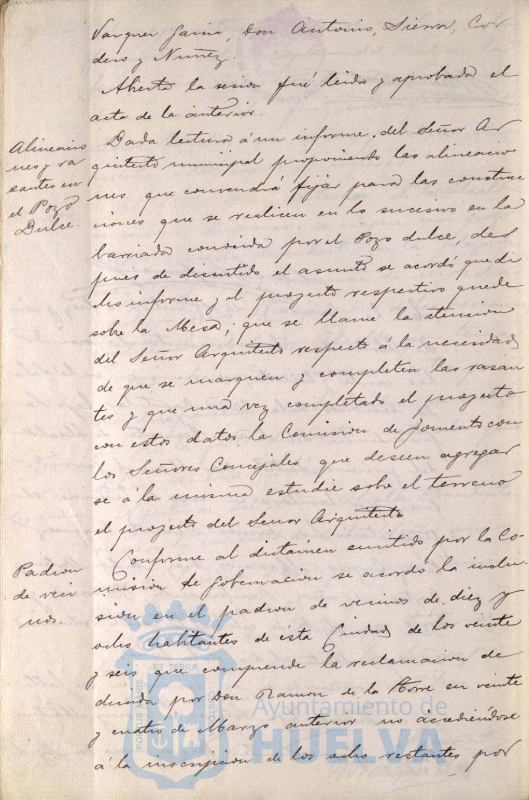 Vazquez Garcia, Don Antonio, Sierra, Cor
dero y Nuñez.
Abierta la sesion fué leida y aprobada el
acta de la anterior.
Alineacio
nes y ra
santes en
el Pozo
Dulce.
Dada lectura á un informe del Señor Ar
quitecto municipal proponiendo las alineacio
nes que convendrá fijar para las construc
ciones que se realicen en lo sucesivo en la
barriada conocida por el Pozo dulce, des
pues de discutido el asunto se acordó que di
cho informe y el proyecto respectivo quede
sobre la Mesa; que se llame la atencion
del Señor Arquitecto respecto á la necesidad
de que se marquen y completen las rasan
tes y que una vez completado el proyecto
con estos datos la Comision de fomento con
los Señores Concejales que deseen agregar
se á la misma estudie sobre el terreno
el proyecto del Señor Arquitecto
Padron
de veci
nos.
Conforme al dictámen emitido por la Co
mision de Gobernacion se acordó la inclu
sion en el padron de vecinos de diez y
ocho habitantes de ésta Ciudad de los veinte
y seis que comprende la reclamacion de
ducida por Don Ramon de la Torre en veinte
y cuatro de Marzo anterior no accediéndose
á la inscripcion de los ocho restantes por
ET TERRA
Ayuntamiento de
HUELVA